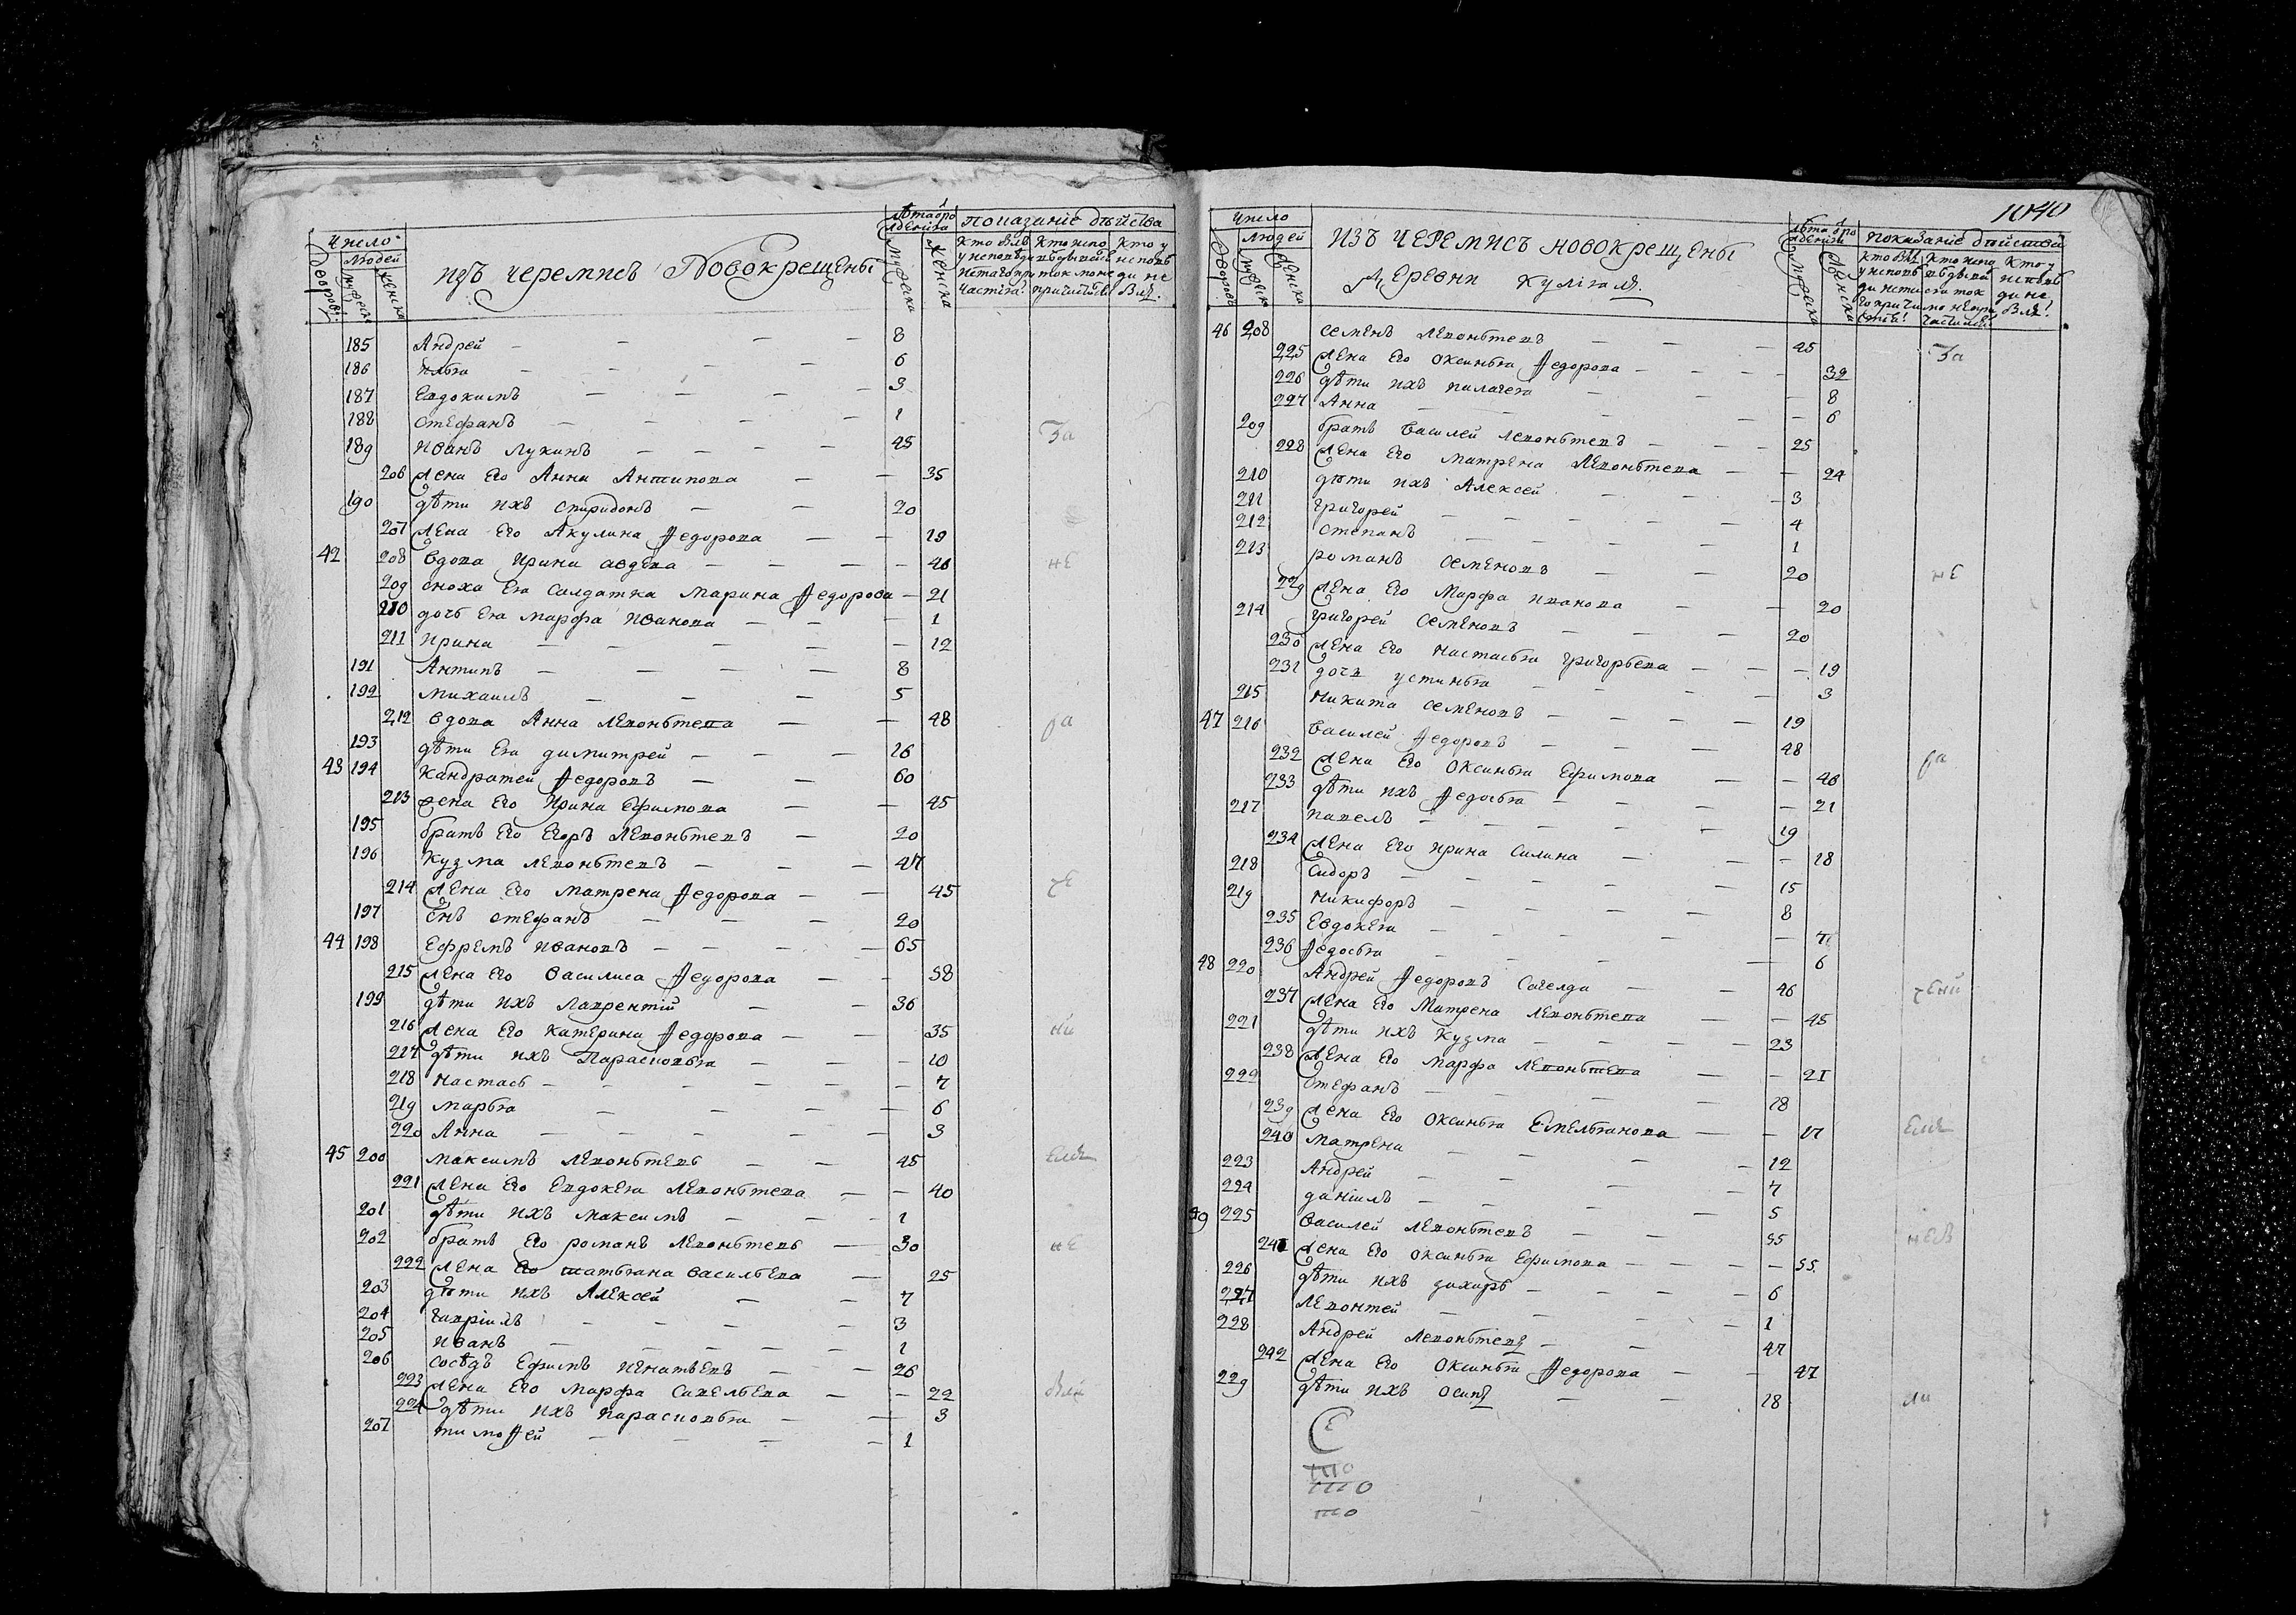 Число
Людей
Дворовъ
мужеска
женска
изъ черемисъ Новокрещены
лѣта от ро
ждениѧ
мужеска
женска
показание действа
185 Андрей 8
186 Илья 6
187 Евдокимъ 3
188 Стефанъ 1
189 Иванъ Лукинъ 45 За
206 жена Его Анна Антипова 35
190 дѣти ихъ Спиридонъ 20
207 жена Его Акулина Ѳедорова 19
42 208 вдова Ирина Авдѣва 46 не
209 сноха Ея Салдатка Марина Ѳедорова 21
210 дочь Ея Марфа Иванова 1
211 Ирина 12
191 Антипъ 8
192 Михаилъ 5
212 вдова Анна Леоньтева 48 ра
193 дѣти Ея Димитрей 16
43 194 Кандратей Ѳедоровъ 60
213 жена Его Ирина Ефимова 45
195 братъ Его Егоръ Леоньтевъ 20
196 Кузма Леоньтевъ 47
214 жена Его Матрена Ѳедорова 45 че
197 Снъ Стефанъ 20
44 198 Ефремъ Ивановъ 65
215 жена Его Василиса Ѳедорова 58
199 дѣти ихъ Лаврентій 36
216 жена Его Катерина Ѳедорова 35 ни
217 дѣти ихъ Парасковья 10
218 Настась 7
219 Марья 6
220 Анна 3
45 200 Максимъ Леоньтевъ 45 емъ
221 жена Его Евдокея Леоньтева 40
201 дѣти ихъ Максимъ 1
202 братъ Его Романъ Леоньтевъ 30 не
222 жена Его Татьяна Васильева 25
203 дѣти ихъ Алексей 7
204 Гаврiилъ 3
205 Иванъ 1
206 сосѣдъ Ефимъ Игнатьевъ 26
223 жена Его Марфа Савельева 22 бли
224 дѣти ихъ Парасковья 3
207 Тимоѳей 1
1040
Число
Людей
Дворовъ
мужеска
женска
ИЗЪ ЧЕРЕМИСЪ НОВОКРЕЩЕНЫ
Деревни Кулігаля
лѣта от ро
ждениѧ
мужеска
женска
показание действа
46 208 Семенъ Леоньтевъ 45 За
225 жена Его Оксинья Ѳедорова 32
226 дѣти ихъ Пилагея 8
227 Анна 6
209 братъ Василей Леоньтевъ 25
228 жена Его Матрена Леоньтева 24
210 дѣти ихъ Алексей 3
211 Григорей 4
212 Степанъ 1
213 Романъ Семеновъ 20 не
229 жена Его Марфа Иванова 20
214 Григорей Семеновъ 20
230 жена Его Настасья Григорьева 19
231 дочь Устинья 3
215 Никита Семеновъ 19
47 216 Василей Ѳедоровъ 48 ра
232 жена Его Оксинья Ефимова 46
233 дѣти ихъ Ѳедосья 21
217 Павелъ 19
234 жена Его Ирина Силина 18
218 Сидоръ 15
219 Никифоръ 8
235 Евдокея 7
236 Ѳедосья 6
48 220 Андрей Ѳедоровъ Сагелда 46 чени
237 жена Его Матрена Леоньтева 45
221 дѣти ихъ Кузма 23
238 жена Его Марфа Леоньтева 21
222 Стефанъ 18
239 жена Его Оксинья Емельянова 17 емъ
240 Матрена 12
223 Андрей 7
224 Данiилъ 5
49 225 Василей Леоньтевъ 55
241 жена Его Оксинья Ефимова 55
226 дѣти ихъ Захаръ 6
227 Леонтей 1
228 Андрей Леоньтевъ 47
242 жена Его Оксинья Ѳедорова 47
229 дѣти ихъ Осипъ 18 ли